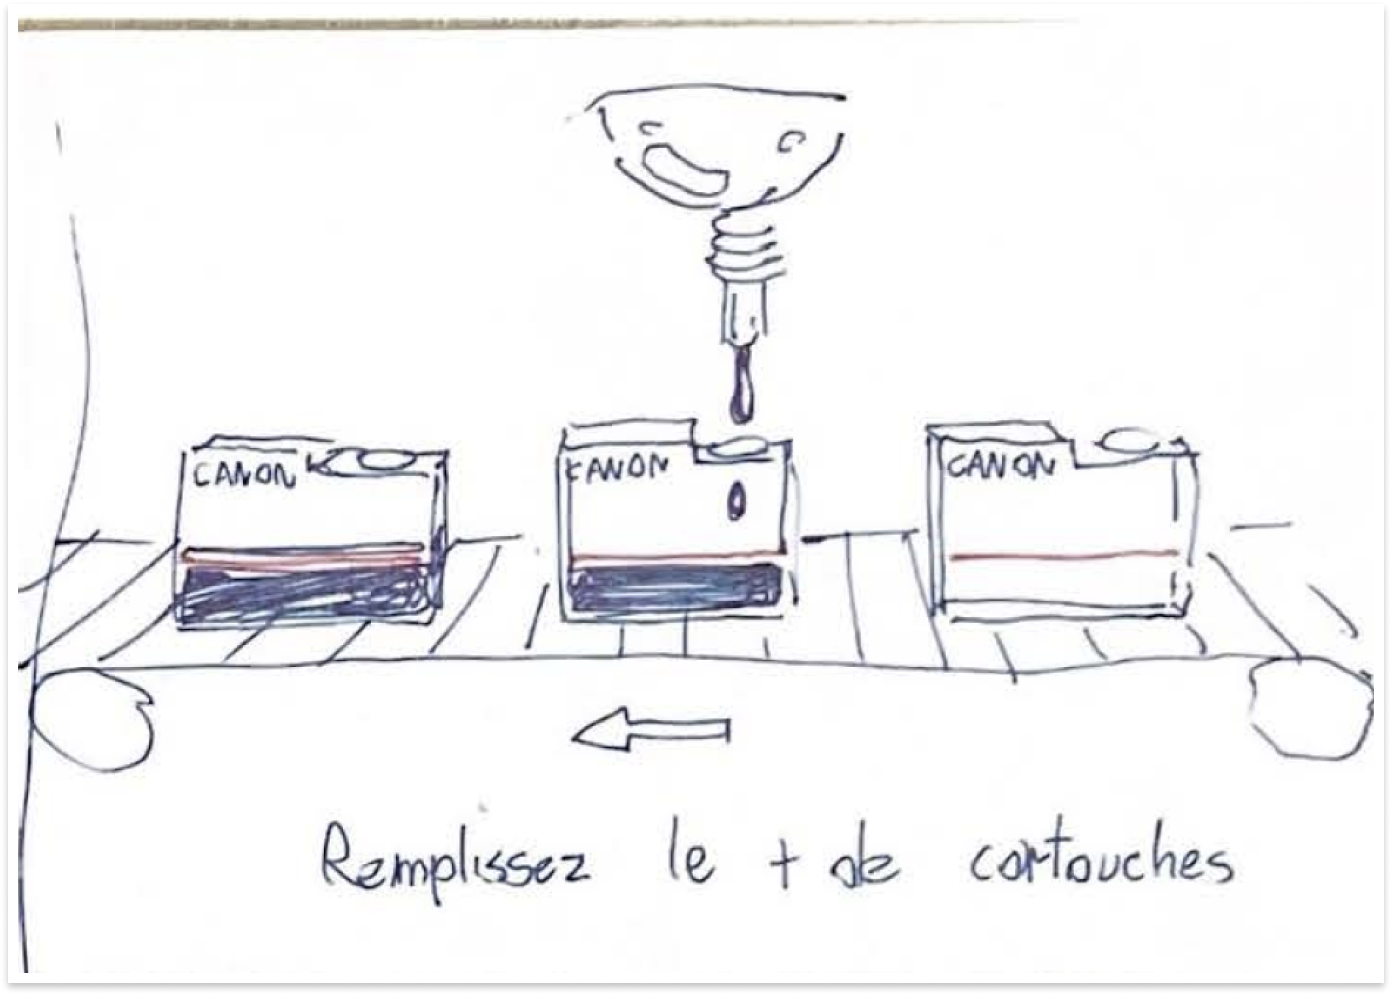 CANON CANON CANON
Remplissez le + de cartouches